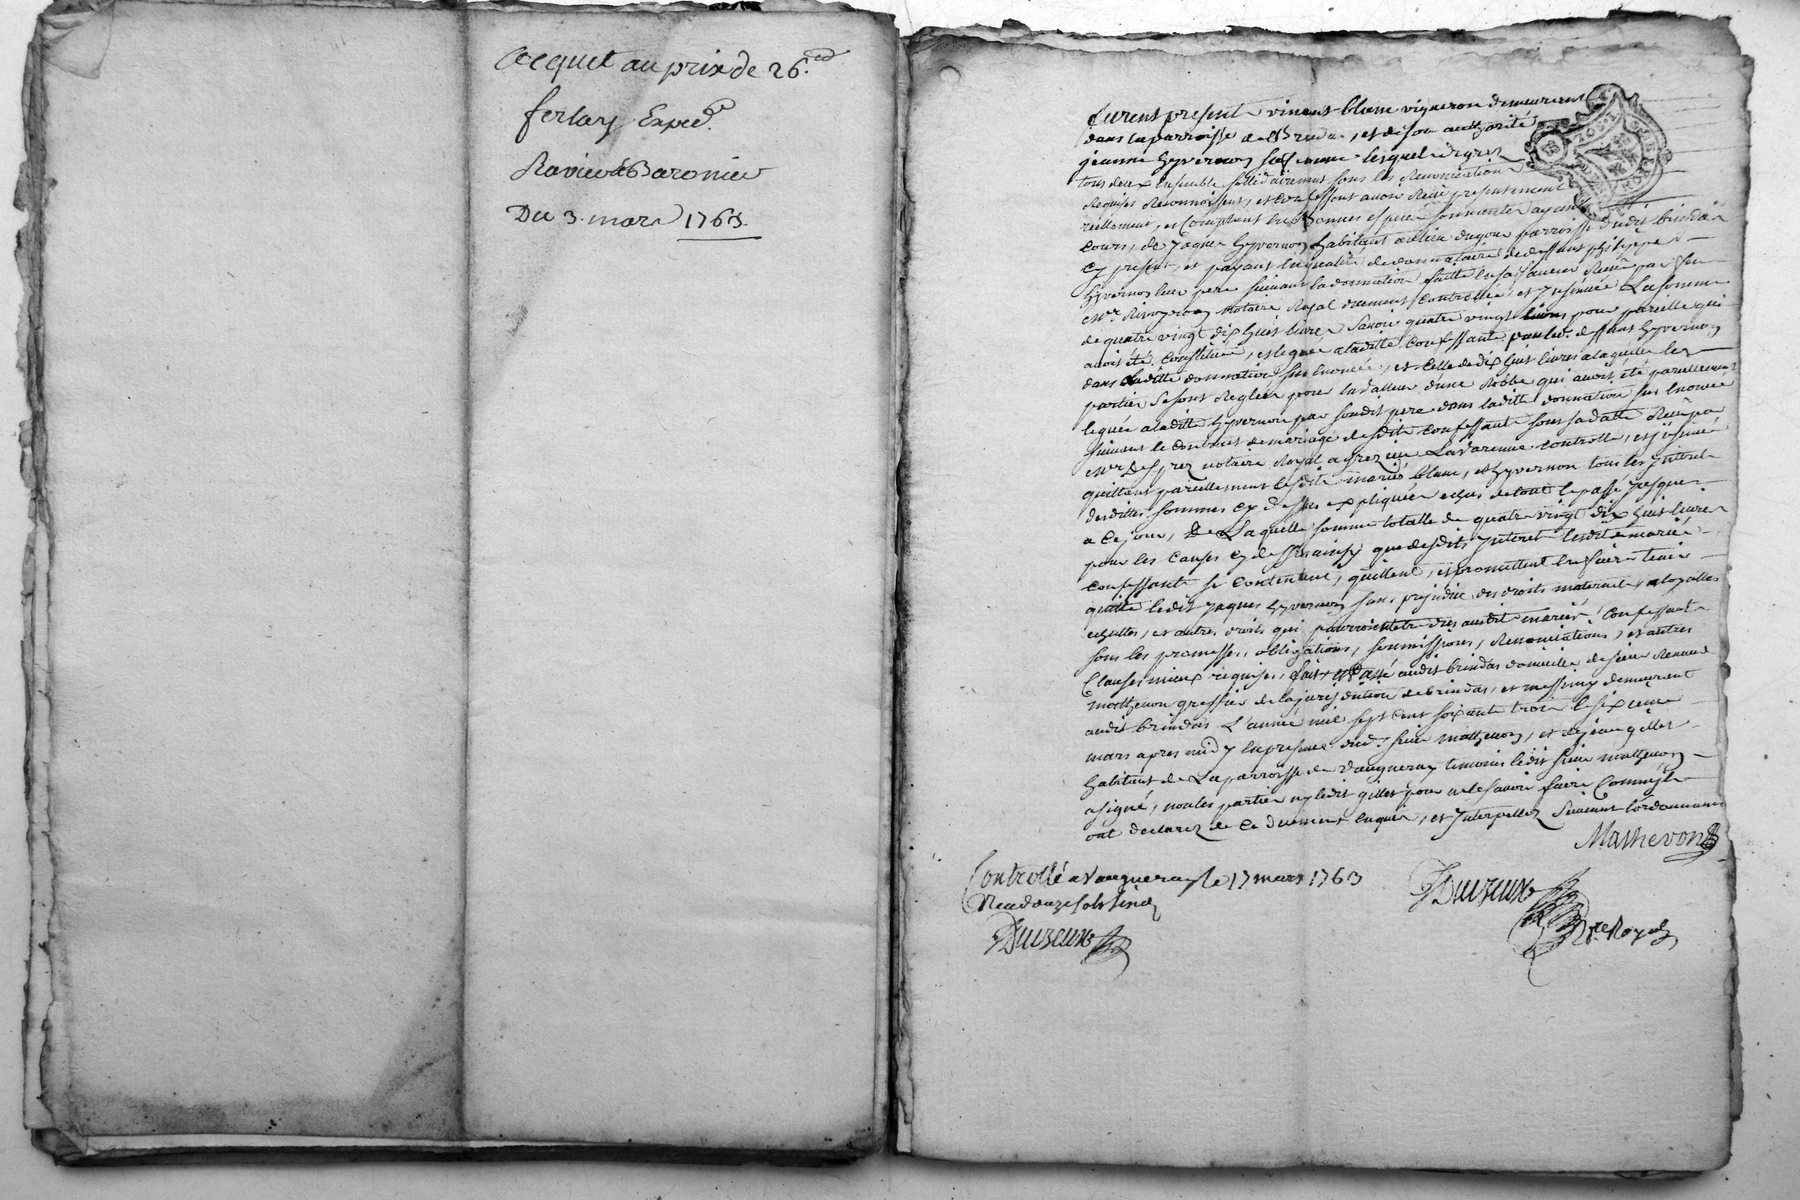 acquet au prix de 26.
ferlay Exped.
Ravier & Baronier
Du 3. mars 1763.
furent present vincent blanc vigneron demeurant
dans la parroisse de Brinda, et de son authorité
jeanne hyvernon sa femme lesquels de gré
tous deux ensemble sollidairement sous les Renonciations
Requises Reconnoissent, et confessent avoir Reçu presentement
reellement, et comptant en bonnes especes sonnantes ayant
cours, de jaques hyvernon habitant au lieu du parroisse dudit brindas
cy present, et payant en qualité de donnataire de deffunt philippe
hyvernon leur pere suivant la donnation faitte en sa faveur Reçue par
notaire Royal duement controllée et Insinuée La somme
de quatre vingt dix huit livres Savoir quatre vingt livres pour pareille qui
avoit été constituée, et leguée a laditte confessante par led. deffunt hyvernon
dans laditte donnation sus enoncée, et celle de dix huit livres a laquelle les
parties se sont Reglées pour la valleur d'une Robbe qui avoit été pareillement
leguée a laditte hyvernon par sondit pere dans laditte donnation sus enoncée
suivant le contract de mariage desdits confessants sous sa datte Reçu par
notaire Royal a grezieu Lavarenne controllé, et insinué
quittant pareillement lesdits mariés blanc, et hyvernon tous les Interets
desdittes sommes cy dessus expliquées echus de tout le passé jusques
a ce jour, De Laquelle somme totalle de quatre vingt dix huit livres
pour les causes cy dessus ainsy que desdits Interets lesdits mariés
confessants se contentent, quittent, et promettent en faire tenir
quitte ledit jaques hyvernon sans prejudice des droits maternels
echuttes, et autres droits qui pourroient etre dus auxdits mariés confessants
sous les promesses, obligations, soumissions, Renonciations, et autres
Clauses mieux requises, fait et Passé audit brindas domicille de sieur
mathevon greffier de la jurisdiction de brindas, et messimy demeurant
audit brindas L'année mil sept cent soixante trois le sixieme
mars apres midy en presence dud. sieur mathevon, et de jean gillet
habitant de La parroisse de Vaugneray temoins ledit sieur mathevon
a signé, non les parties ny ledit gillet pour ne le savoir faire comme ils
ont declarez de ce duement enquis, et Interpellez suivant l'ordonnance
Mathevon
Controllé a Vaugneray le 17 mars 1763
Reçu douze sols
Duvieux
Duvieux
Re Royal